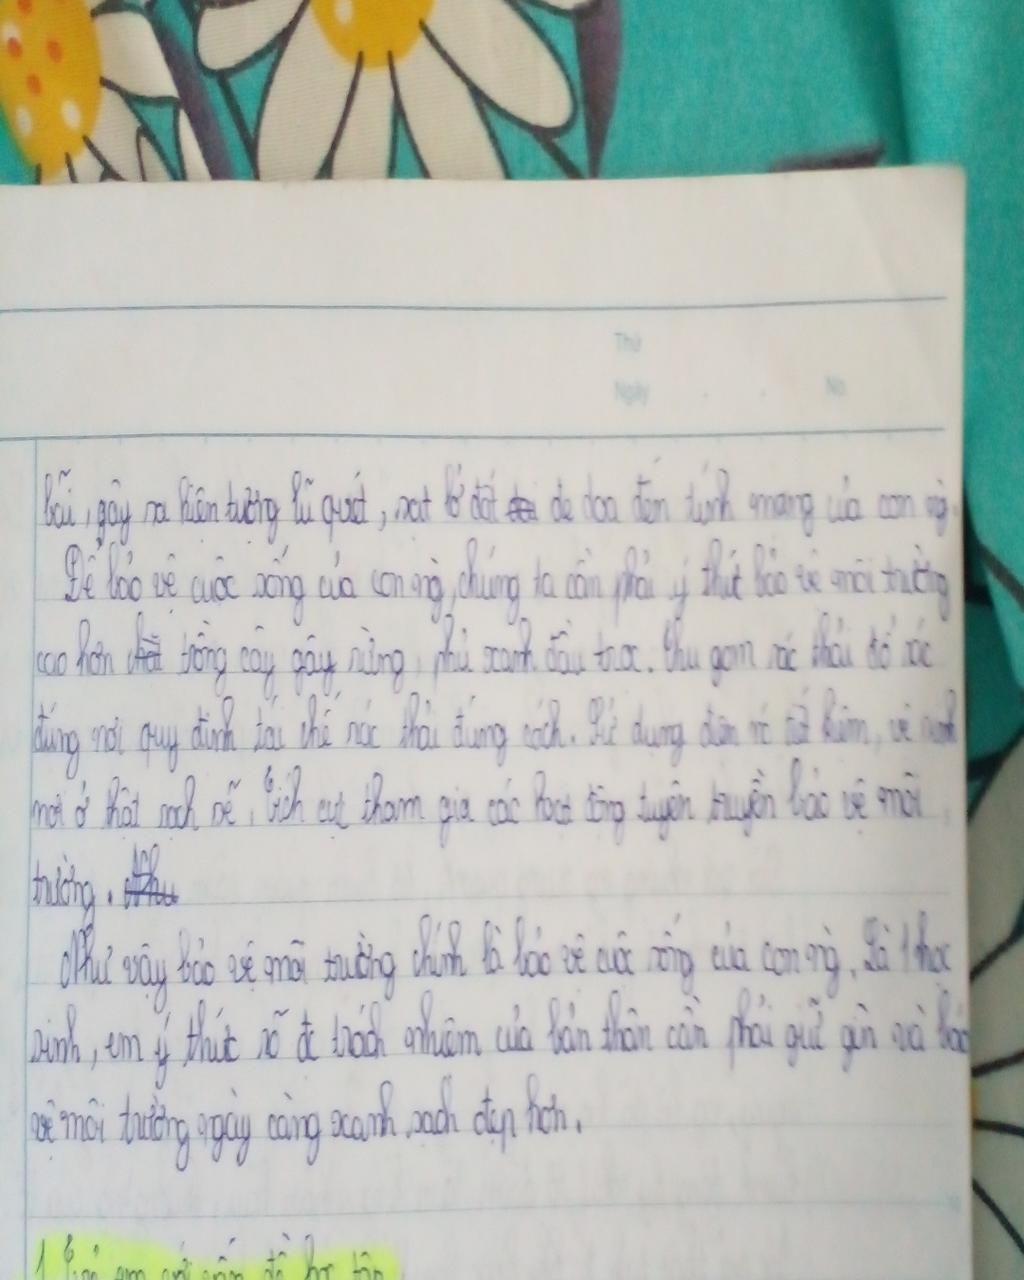 Thứ
Ngày No
bãi, gây ra hiện tượng lũ quét, sạt lở đất đe doạ đến tính mạng của con ng.
Để bảo vệ cuộc sống của con ng, chúng ta cần phải ý thức bảo vệ môi trường
cao hơn trồng cây gây rừng, phủ xanh đồi trọc. Thu gom rác thải đổ rác
đúng nơi quy định tái chế rác thải đúng cách. Sử dụng điện tiết kiệm, vệ sinh
nơi ở thật sạch sẽ, tích cực tham gia các hoạt động tuyên truyền bảo vệ môi
trường.
Như vậy bảo vệ môi trường chính là bảo vệ cuộc sống của con ng. Là 1 học
sinh, em ý thức rõ đc trách nhiệm của bản thân cần phải giữ gìn và bảo
vệ môi trường ngày càng xanh, sạch đẹp hơn.